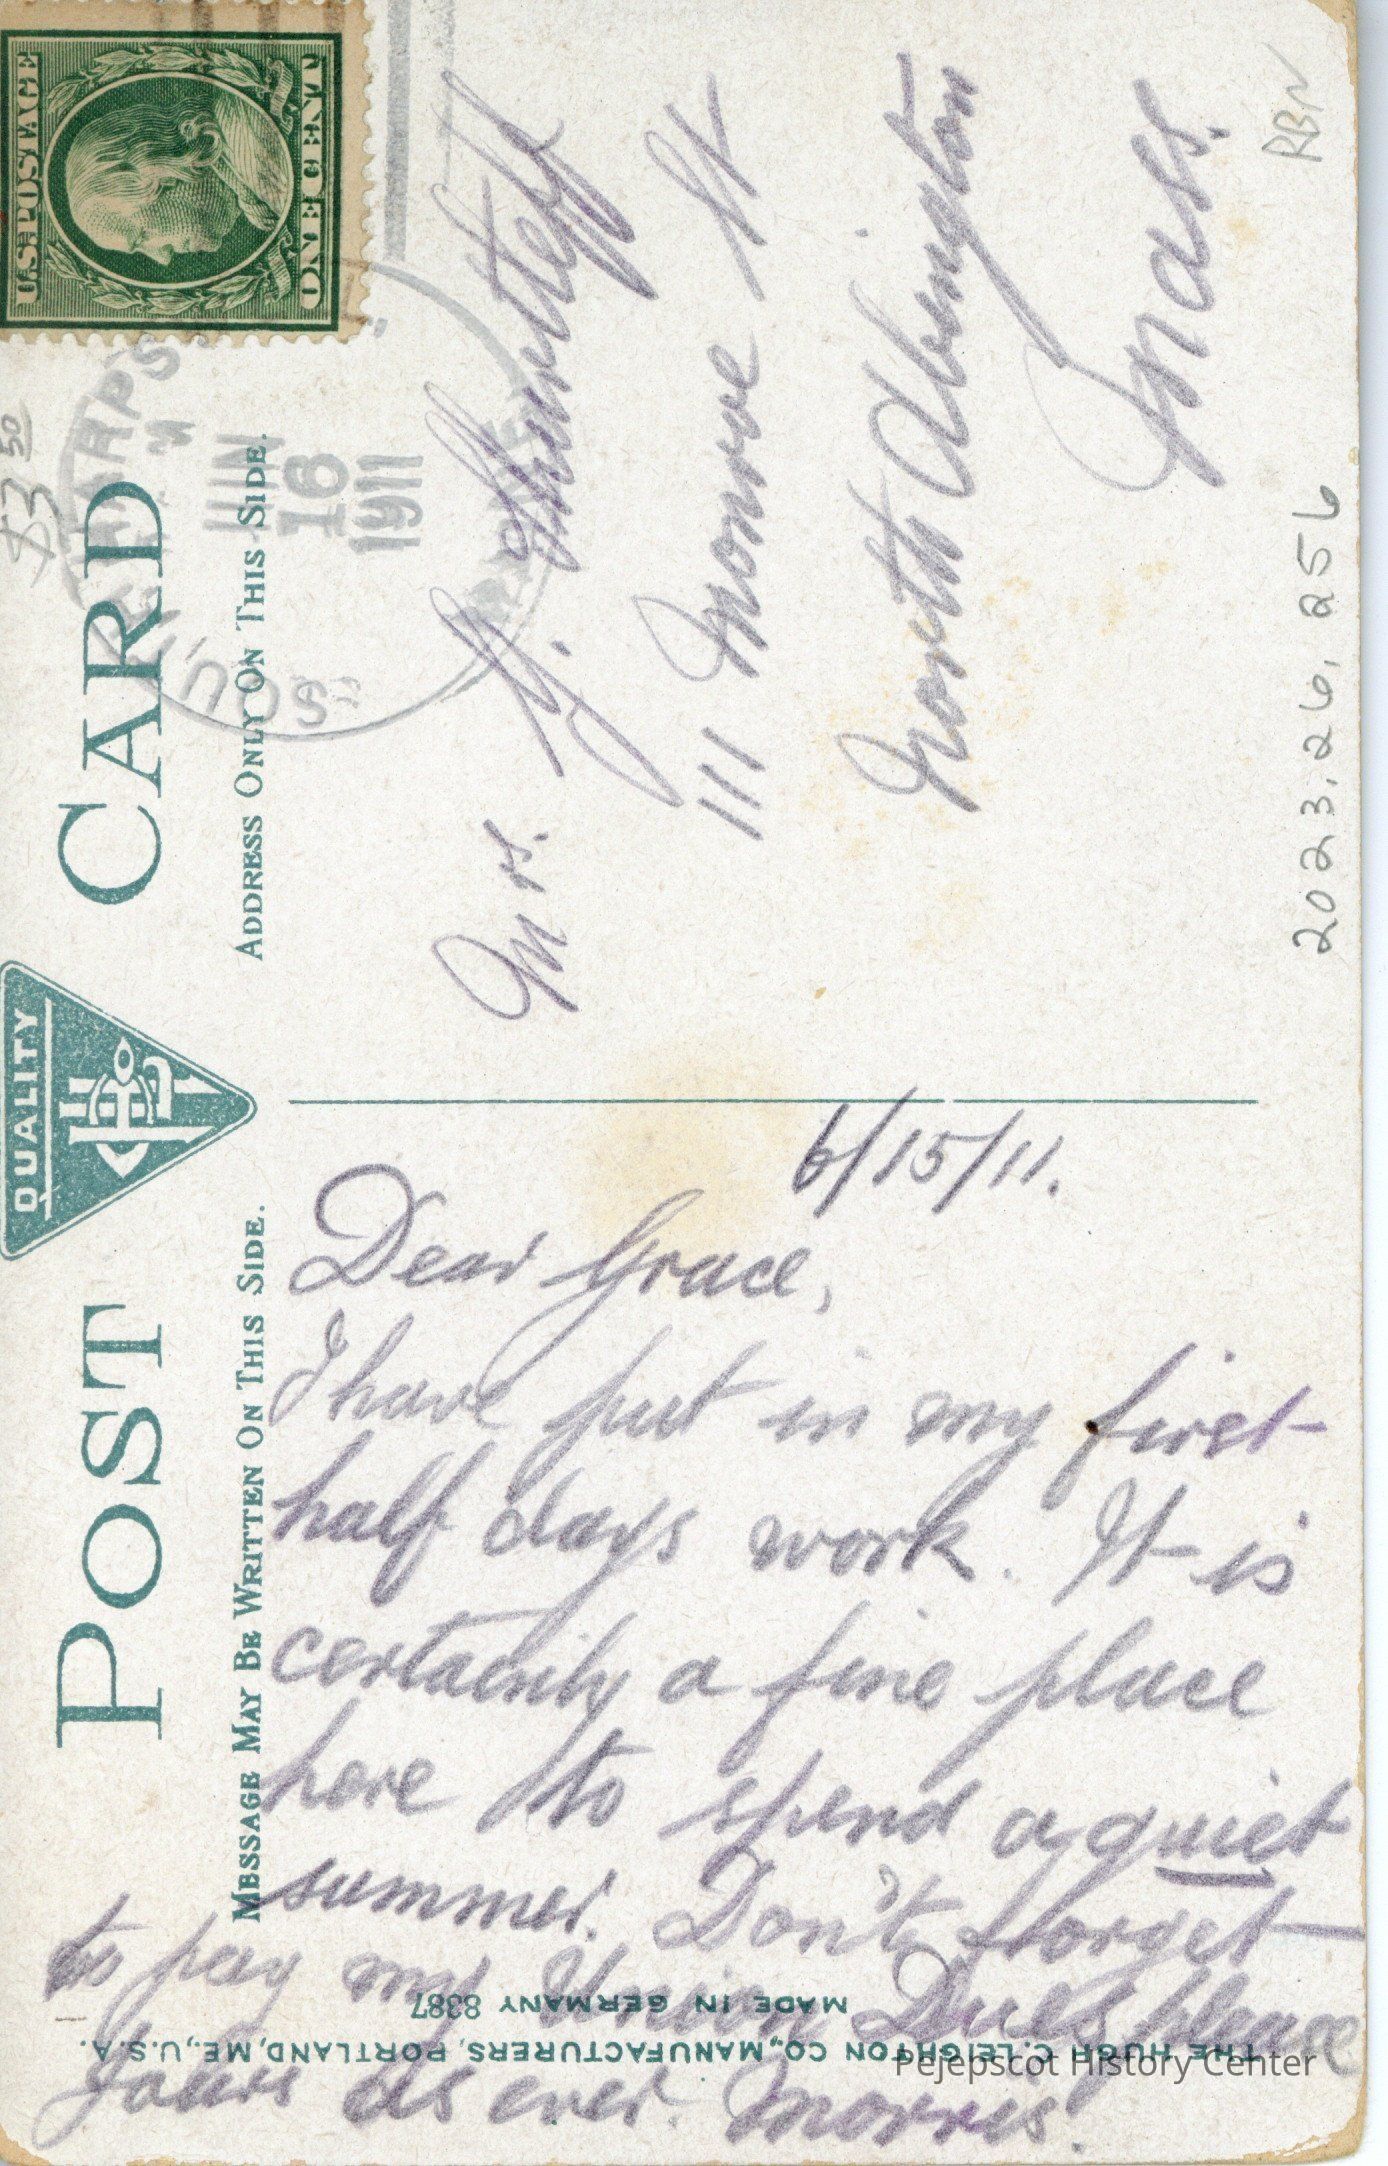 POST CARD
QUALITY
MESSAGE MAY BE WRITTEN ON THIS SIDE.
ADDRESS ONLY ON THIS SIDE.
U.S. POSTAGE
ONE CENT
$3 50
SOUTH HARPS
JUN
16
1911
6/15/11.
Dear Grace,
I have put in my first
half days work. It is
certainly a fine place
here to spend a quiet
summer. Don't forget
to pay my Union Dues please
Yours as ever. Morris.
Mrs. H. Shurtleff
111 Monroe St
North Abington
Mass.
RBN
2023.26.256
THE HUGH C. LEIGHTON CO., MANUFACTURERS, PORTLAND, ME., U.S.A.
MADE IN GERMANY 8387
Pejepscot History Center